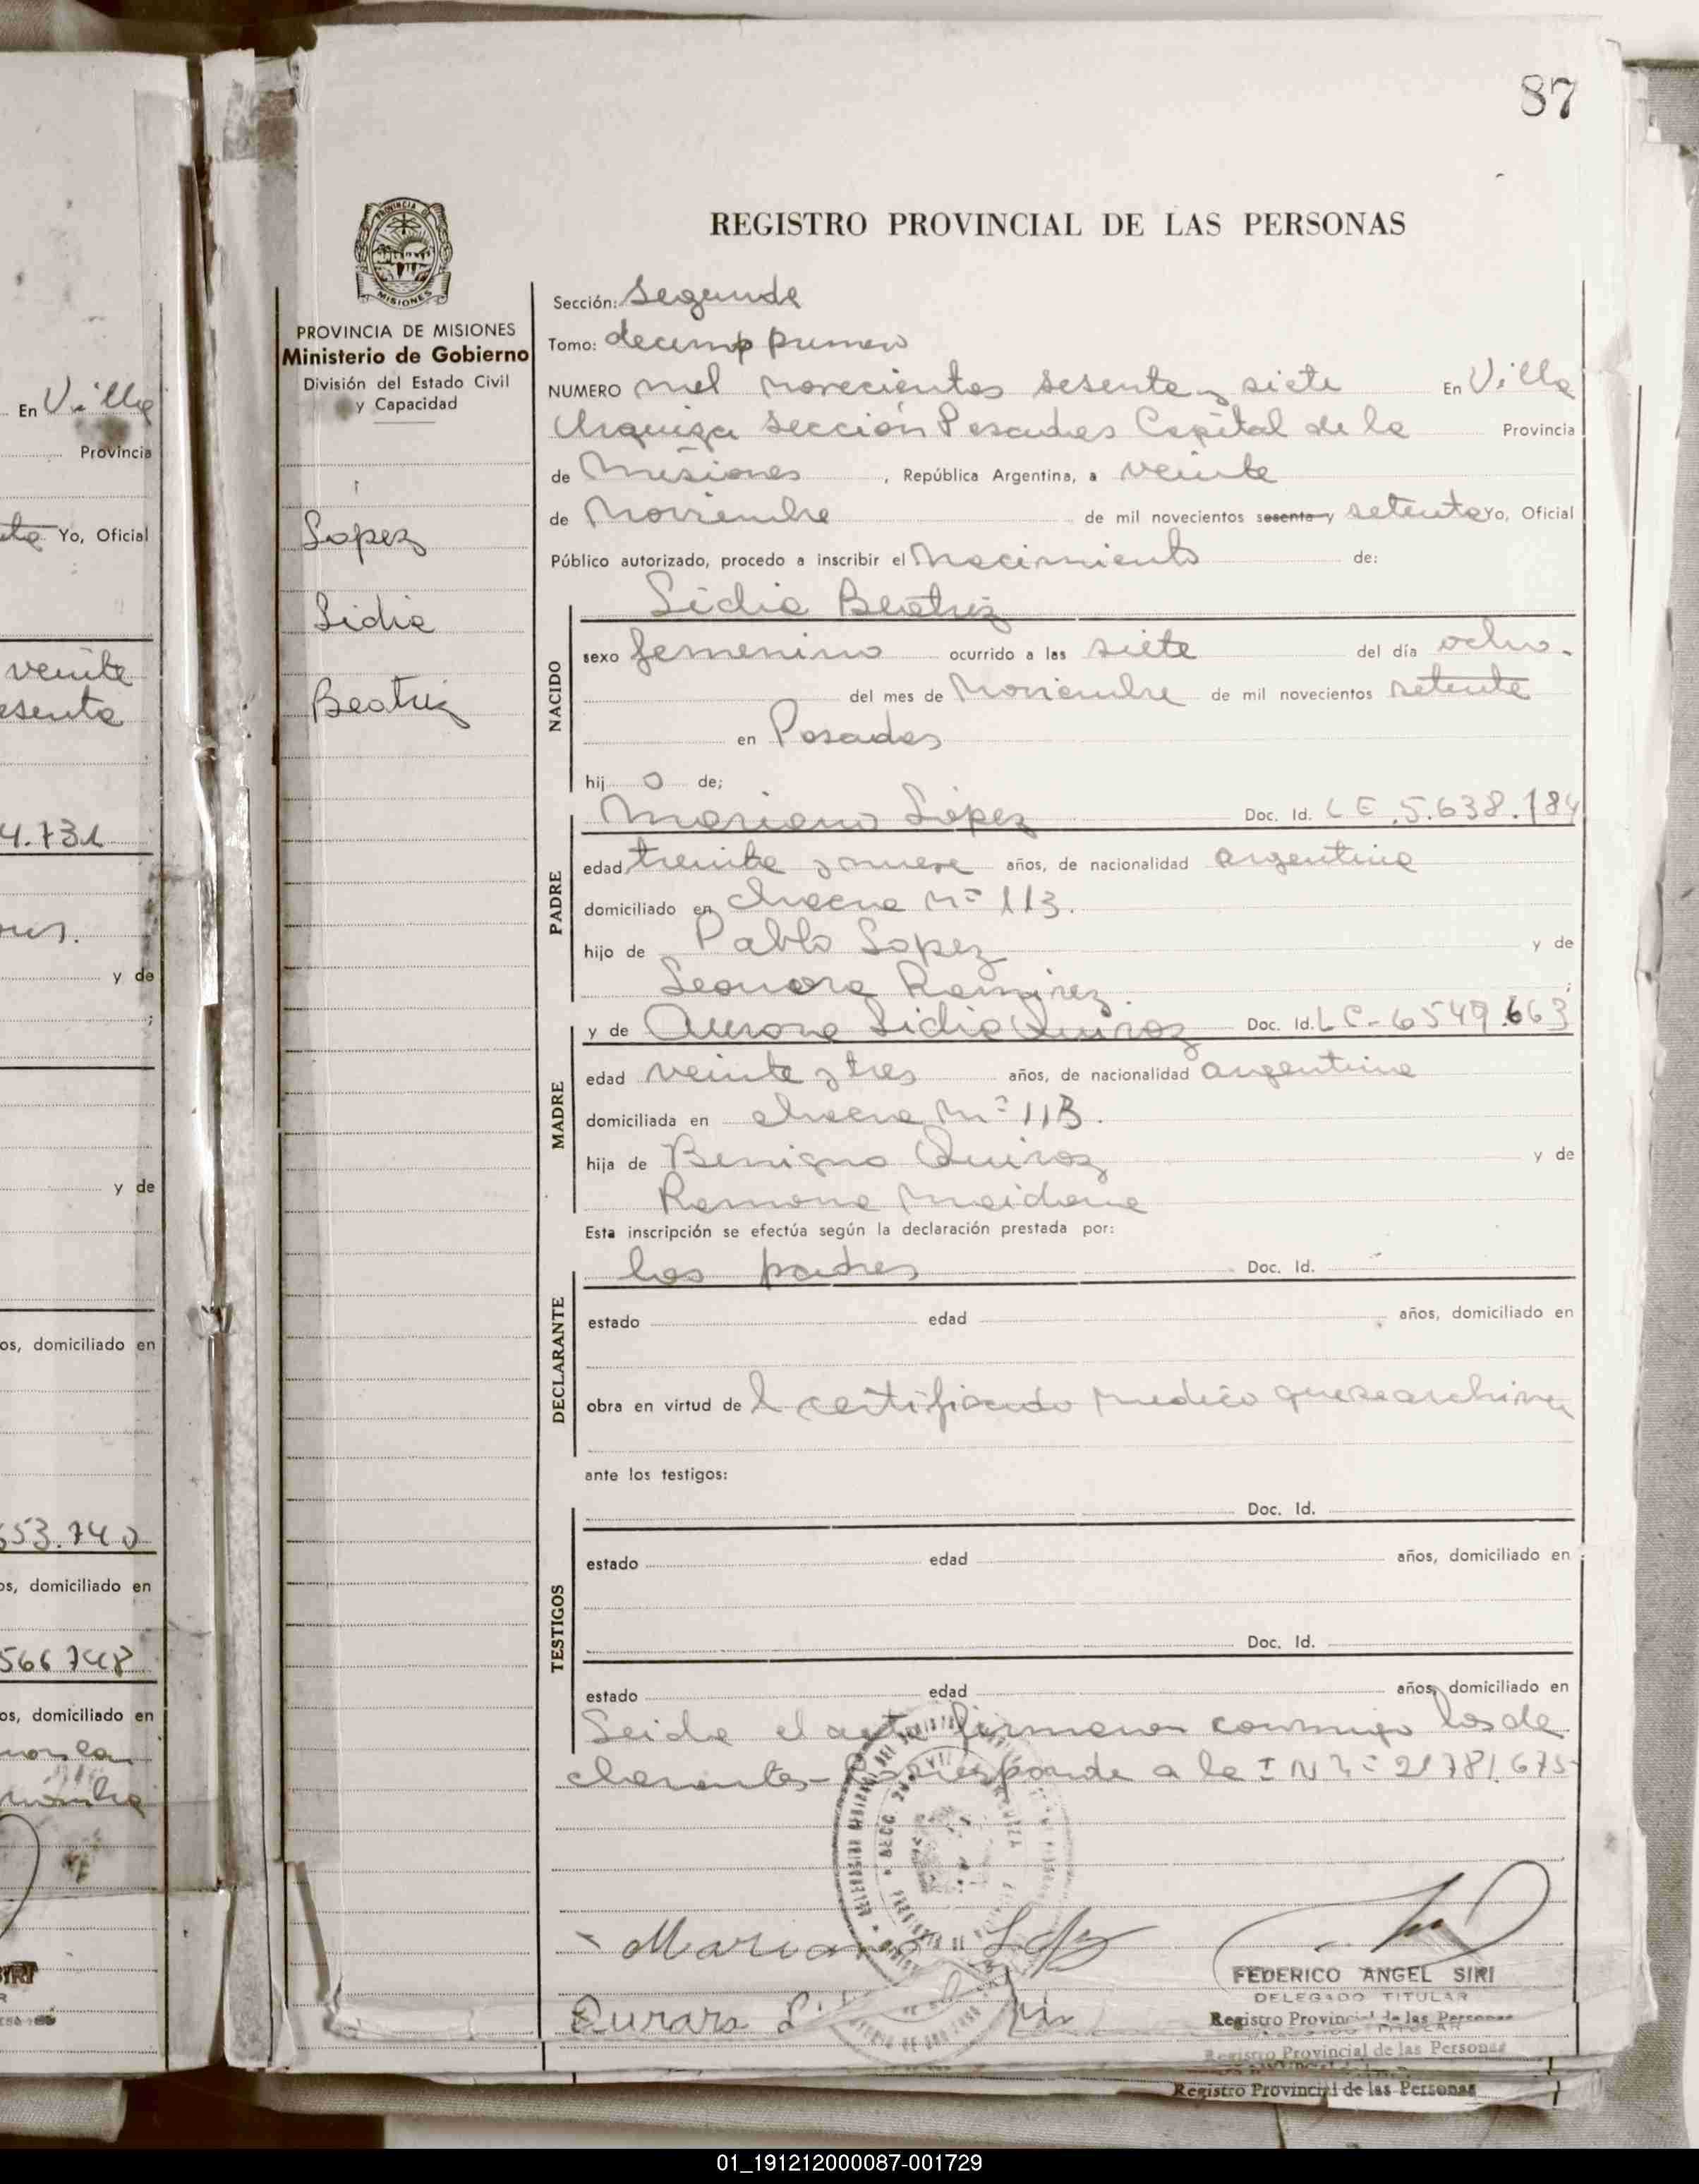 87
REGISTRO PROVINCIAL DE LAS PERSONAS
PROVINCIA DE MISIONES
Ministerio de Gobierno
División del Estado Civil
y Capacidad
Lopez
Lidia
Beatriz
Sección: Segunda
Tomo: decimo primero
NUMERO mil novecientos sesenta y siete En Villa
Urquiza Sección Posadas Capital de la Provincia
de Misiones, República Argentina, a veinte
de Noviembre de mil novecientos sesenta y setenta Yo, Oficial
Público autorizado, procedo a inscribir el Nacimiento de:
Lidia Beatriz
NACIDO
sexo femenino ocurrido a las siete del día ocho.
del mes de Noviembre de mil novecientos setenta
en Posadas
hij o de;
Mariano López Doc. Id. LE.5.638.184
PADRE
edad treinta y nueve años, de nacionalidad argentina
domiciliado en chacra nº 113.
hijo de Pablo Lopez y de
Leonora Ramirez. ;
MADRE
y de Aurora Lidia Quiroz Doc. Id. LC-6549.663
edad veinte y tres años, de nacionalidad argentina
domiciliada en chacra Nº 113.
hija de Benigno Quiroz y de
Ramona Maidana
Esta inscripción se efectúa según la declaración prestada por:
los padres Doc. Id.
DECLARANTE
estado edad años, domiciliado en
obra en virtud de l certificado medico que se archiva
ante los testigos:
Doc. Id.
TESTIGOS
estado edad años, domiciliado en
Doc. Id.
estado edad años, domiciliado en
Leida el acta firmaron conmigo los de
clarantes- Corresponde a la I Nº= 21781.675-
Mariano
FEDERICO ANGEL SIRI
DELEGADO TITULAR
Registro Provincial de las Personas
Registro Provincial de las Personas
Registro Provincial de las Personas
En Villa
Provincia
Yo, Oficial
veinte
4.731
y de
;
y de
os, domiciliado en
653.740
os, domiciliado en
566748
os, domiciliado en
01_191212000087-001729